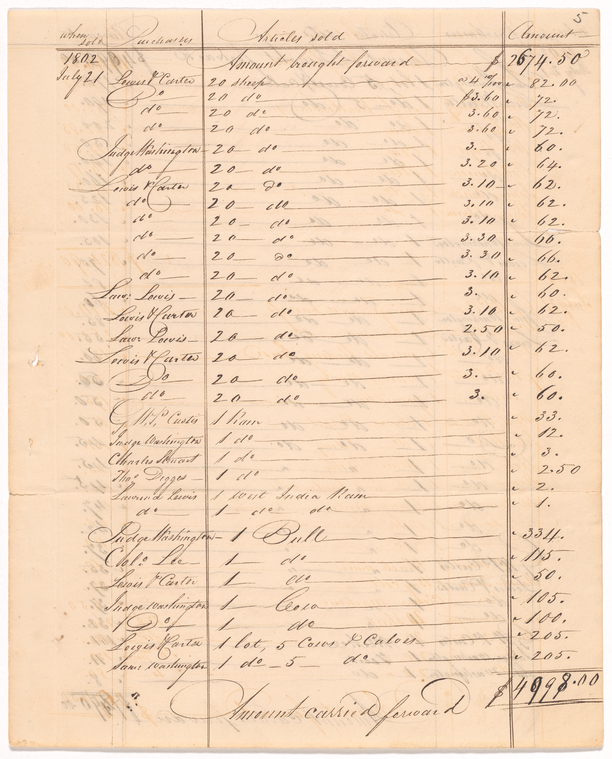 5
when sold Purchasers Articles sold Amount
1802 Amount brought forward $ 2674.50
July 21 Lewis & Carter 20 sheep a 4 10/100 " 82.00
Do 20 do $3.60 " 72.
do 20 do 3.60 " 72.
do 20 do 3.60 " 72.
Judge Washington 20 do 3. " 60.
do 20 do 3.20 " 64.
Lewis & Carter 20 do 3.10 " 62.
do 20 do 3.10 " 62.
do 20 do 3.10 " 62.
do 20 do 3.30 " 66.
do 20 do 3.30 " 66.
do 20 do 3.10 " 62.
Lawr. Lewis 20 do 3. " 60.
Lewis & Carter 20 do 3.10 " 62.
Lawr Lewis 20 do 2.50 " 50.
Lewis & Carter 20 do 3.10 " 62.
Do 20 do 3. " 60.
do 20 do 3. " 60.
G. W. P. Custis 1 Ram " 33.
Judge Washington 1 do " 12.
Charles Stewart 1 do " 3.
Thos Digges 1 do " 2.50
Lawrence Lewis 1 West India Ram " 2.
do 1 do do " 1.
Judge Washington 1 Bull " 334.
Colo. Lee 1 do " 115.
Lewis & Carter 1 do " 50.
Judge Washington 1 Cow " 105.
Do 1 do " 100.
Lewis & Carter 1 lot, 5 Cows & Calves " 205.
Washington 1 do 5 do " 205.
Amount carried forward $ 4998.00